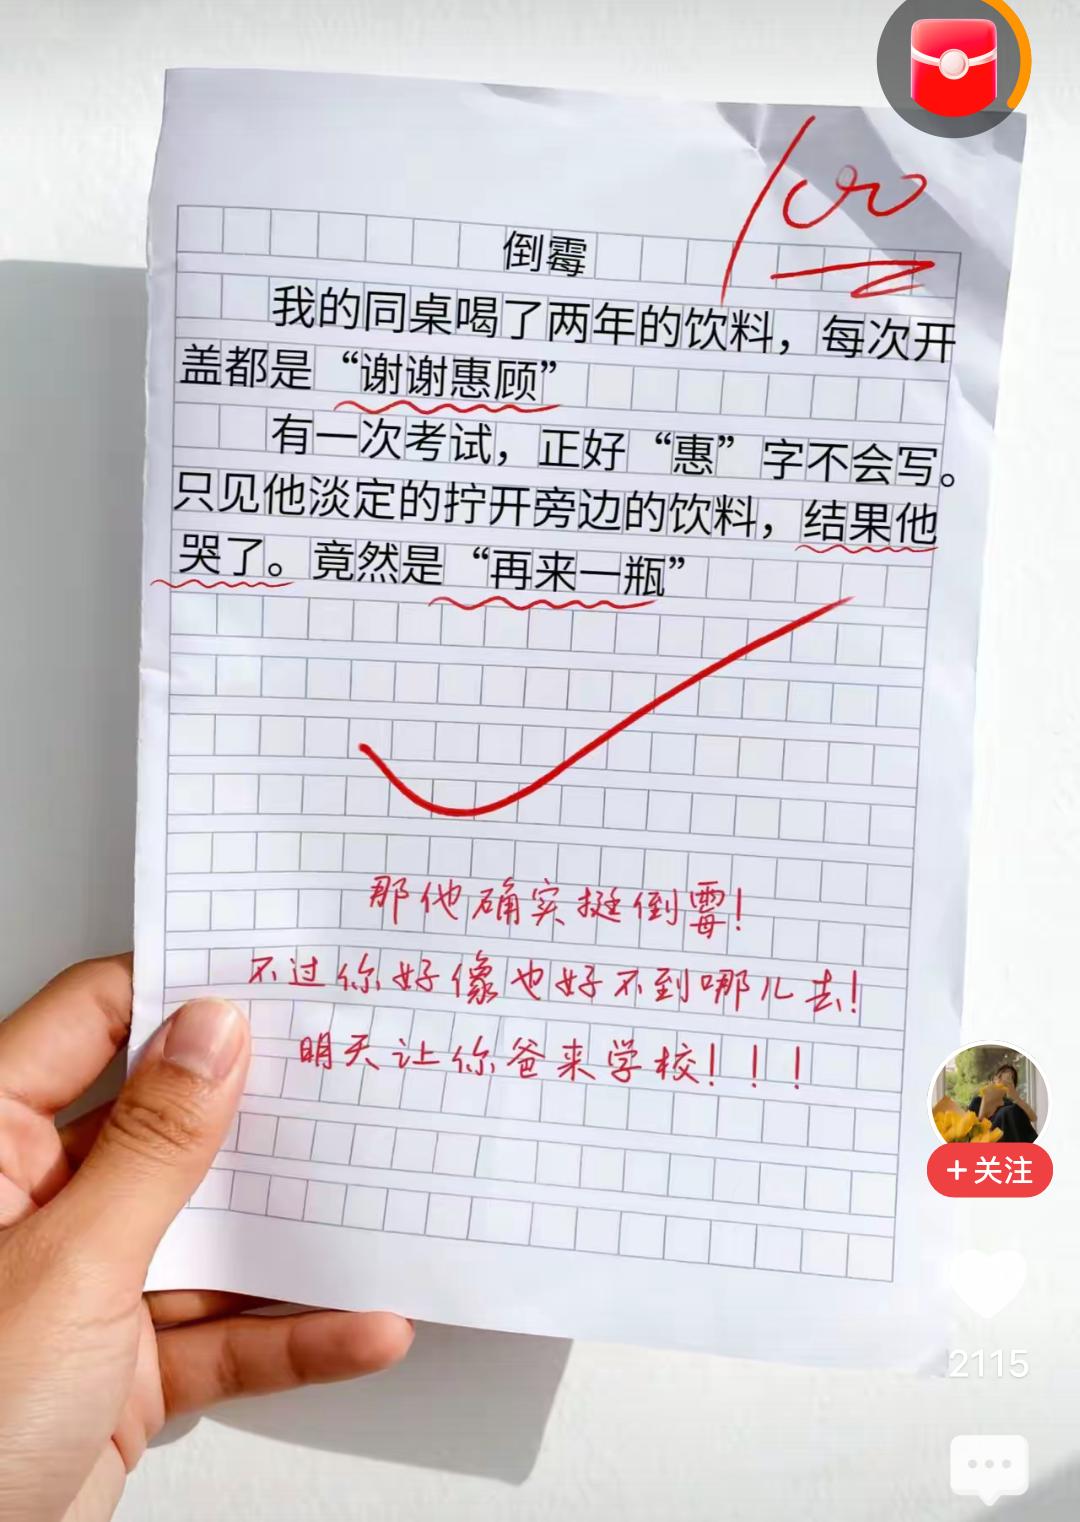 100
倒霉
我的同桌喝了两年的饮料，每次开
盖都是“谢谢惠顾”
有一次考试，正好“惠”字不会写。
只见他淡定的拧开旁边的饮料，结果他
哭了。竟然是“再来一瓶”
那他确实挺倒霉！
不过你好像也好不到哪儿去！
明天让你爸来学校！！！
+关注
2115